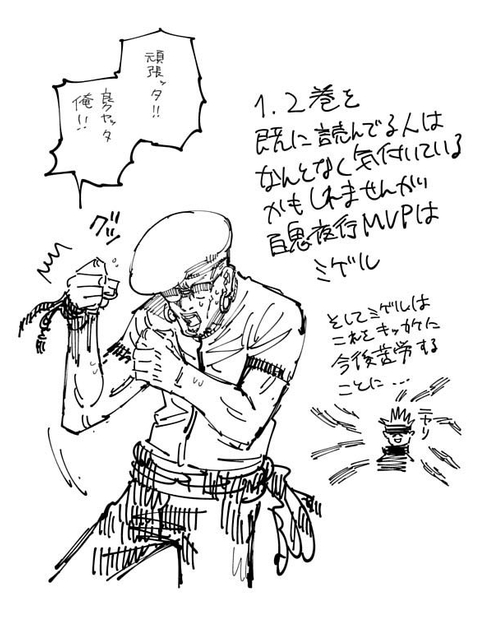 頑張ッタ!!
良クヤッタ
俺!!
1.2巻を
既に読んでる人は
なんとなく気付いている
かもしれませんが
百鬼夜行MVPは
ミゲル
グッ
そしてミゲルは
これをキッカケに
今後苦労する
ことに...
ニヤリ